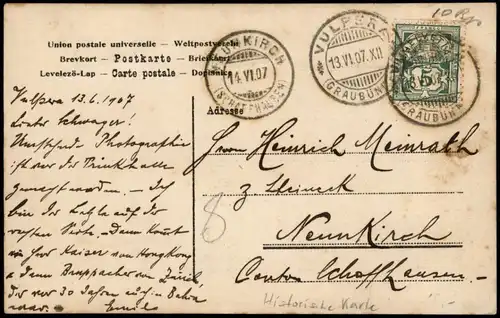 Union postale universelle – Weltpostverein
Brevkort – Postkarte – Briefkaart
Levelező-Lap – Carte postale – Dopisnice
Adresse
NEUNKIRCH
14.VI.07
(SCHAFFHAUSEN)
VULPERA
13.VI.07.XII
(GRAUBÜND
VULPERA
(GRAUBÜND
5
10 Rp
Vulpera 13.6.1907
Lieber Schwager!
Umstehende Photographie
ist vor der Trinkhalle
gemacht worden. – Ich
bin der letzte auf der
rechten Seite. – Dann kommt
Herr Kaiser von Hongkong
& dann Bruppacher von Zürich,
der vor 30 Jahren auch in
war. Emil
Herrn Heinrich Meinrath
z
Neunkirch
Canton Schaffhausen.–
8
Historische Karte